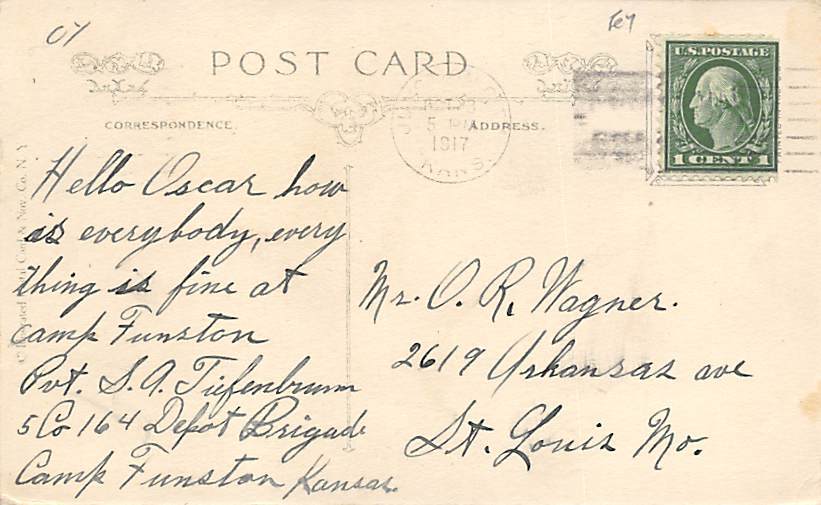 POST CARD
CORRESPONDENCE.
ADDRESS.
5 PM
1917
KANS.
U.S. POSTAGE
1 CENT 1
Hello Oscar how
is everybody, every
thing is fine at
Camp Funston
Pvt. S. A. Tiefenbrunn
5 Co 164 Depot Brigade
Camp Funston Kansas.
Mr. O. R. Wagner.
2619 Arkansas ave
St. Louis Mo.
© Illustrated Postal Card & Nov. Co. N. Y.